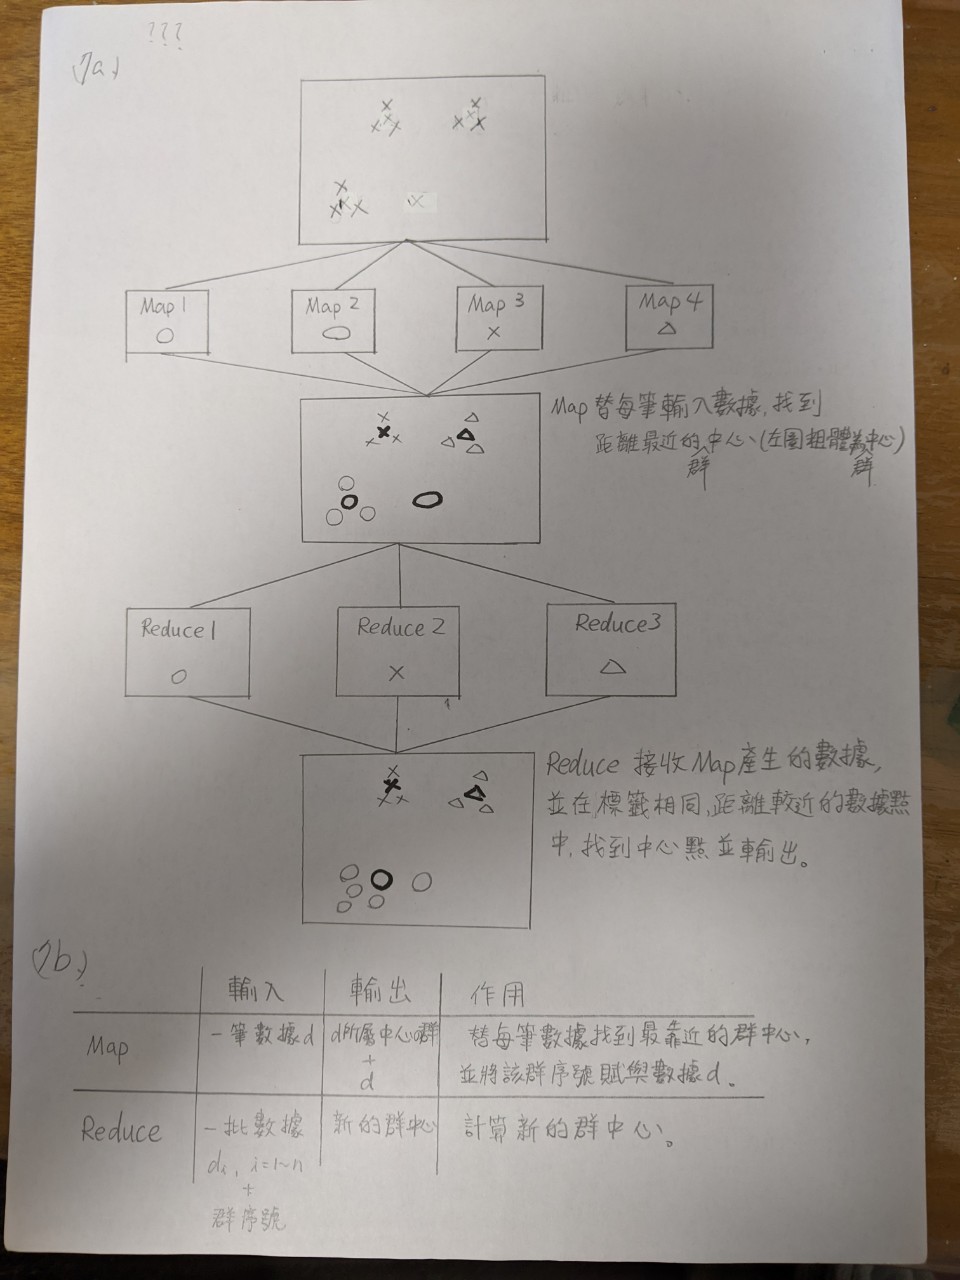 ???
7a.
Map 1
Map 2
Map 3
Map 4
Map 替每筆輸入數據,找到
距離最近的群中心、(左圖粗體為群中心)
Reduce 1
Reduce 2
Reduce3
Reduce 接收Map產生的數據,
並在標籤相同、距離較近的數據點
中,找到中心點並輸出。
7b.
輸入 輸出 作用
Map 一筆數據d d所屬中心群 + d 替每筆數據找到最靠近的群中心,
並將該群序號賦與數據d。
Reduce 一批數據 新的群中心 計算新的群中心。
di, i=1~n
+
群序號